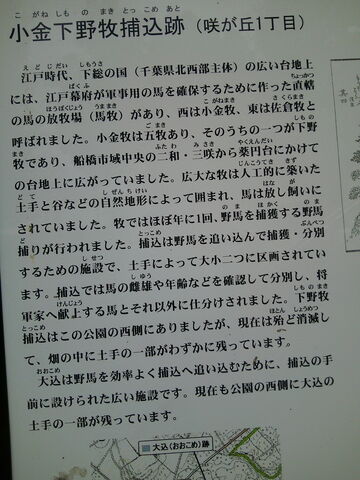 こがねしものまきとっこめあと
小金下野牧捕込跡（咲が丘1丁目）
江戸時代、下総の国（千葉県北西部主体）の広い台地上
には、江戸幕府が軍事用の馬を確保するために作った直轄
の馬の放牧場（馬牧）があり、西は小金牧、東は佐倉牧と
呼ばれました。小金牧は五牧あり、そのうちの一つが下野
牧であり、船橋市域中央の二和・三咲から薬円台にかけて
の台地上に広がっていました。広大な牧は人工的に築いた
土手と谷などの自然地形によって囲まれ、馬は放し飼いに
されていました。牧ではほぼ年に1回、野馬を捕獲する野馬
捕りが行われました。捕込は野馬を追い込んで捕獲・分別
するための施設で、土手によって大小二つに区画されてい
ます。捕込では馬の雌雄や年齢などを確認して分別し、将
軍家へ献上する馬とそれ以外に仕分けされました。下野牧
捕込はこの公園の西側にありましたが、現在は殆ど消滅し
て、畑の中に土手の一部がわずかに残っています。
大込は野馬を効率よく捕込へ追い込むために、捕込の手
前に設けられた広い施設です。現在も公園の西側に大込の
土手の一部が残っています。
大込（おおこめ）跡